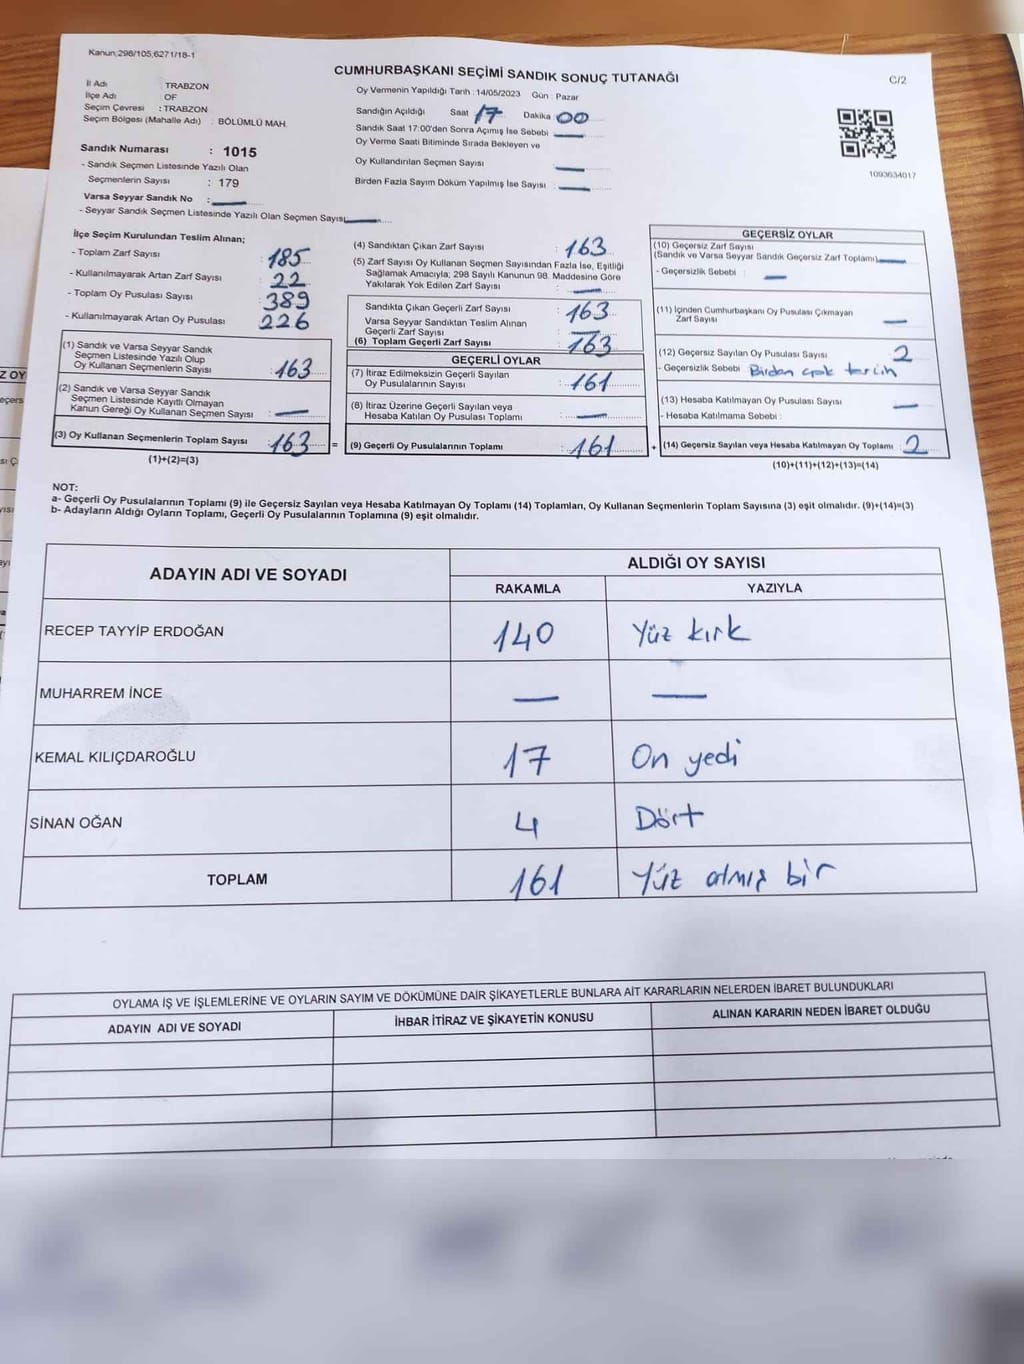 Kanun:298/105,6271/18-1
CUMHURBAŞKANI SEÇİMİ SANDIK SONUÇ TUTANAĞI
C/2
İl Adı : TRABZON
İlçe Adı : OF
Seçim Çevresi : TRABZON
Seçim Bölgesi (Mahalle Adı) : BÖLÜMLÜ MAH.
Sandık Numarası : 1015
- Sandık Seçmen Listesinde Yazılı Olan
Seçmenlerin Sayısı : 179
Varsa Seyyar Sandık No :
- Seyyar Sandık Seçmen Listesinde Yazılı Olan Seçmen Sayısı:
Oy Vermenin Yapıldığı Tarih : 14/05/2023 Gün : Pazar
Sandığın Açıldığı Saat 17 Dakika 00
Sandık Saat 17:00'den Sonra Açılmış İse Sebebi
Oy Verme Saati Bitiminde Sırada Bekleyen ve
Oy Kullandırılan Seçmen Sayısı :
Birden Fazla Sayım Döküm Yapılmış İse Sayısı :
1093634017
İlçe Seçim Kurulundan Teslim Alınan;
- Toplam Zarf Sayısı : 185
- Kullanılmayarak Artan Zarf Sayısı : 22
- Toplam Oy Pusulası Sayısı : 389
- Kullanılmayarak Artan Oy Pusulası : 226
(1) Sandık ve Varsa Seyyar Sandık
Seçmen Listesinde Yazılı Olup
Oy Kullanan Seçmenlerin Sayısı : 163
(2) Sandık ve Varsa Seyyar Sandık
Seçmen Listesinde Kayıtlı Olmayan
Kanun Gereği Oy Kullanan Seçmen Sayısı :
(3) Oy Kullanan Seçmenlerin Toplam Sayısı : 163 =
(1)+(2)=(3)
(4) Sandıktan Çıkan Zarf Sayısı : 163
(5) Zarf Sayısı Oy Kullanan Seçmen Sayısından Fazla İse, Eşitliği
Sağlamak Amacıyla; 298 Sayılı Kanunun 98. Maddesine Göre
Yakılarak Yok Edilen Zarf Sayısı :
Sandıkta Çıkan Geçerli Zarf Sayısı : 163
Varsa Seyyar Sandıktan Teslim Alınan
Geçerli Zarf Sayısı :
(6) Toplam Geçerli Zarf Sayısı : 163
GEÇERLİ OYLAR
(7) İtiraz Edilmeksizin Geçerli Sayılan
Oy Pusulalarının Sayısı : 161
(8) İtiraz Üzerine Geçerli Sayılan veya
Hesaba Katılan Oy Pusulası Toplamı :
(9) Geçerli Oy Pusulalarının Toplamı : 161 +
GEÇERSİZ OYLAR
(10) Geçersiz Zarf Sayısı
(Sandık ve Varsa Seyyar Sandık Geçersiz Zarf Toplamı)
- Geçersizlik Sebebi :
(11) İçinden Cumhurbaşkanı Oy Pusulası Çıkmayan
Zarf Sayısı
(12) Geçersiz Sayılan Oy Pusulası Sayısı : 2
- Geçersizlik Sebebi Birden çok tercih
(13) Hesaba Katılmayan Oy Pusulası Sayısı :
- Hesaba Katılmama Sebebi :
(14) Geçersiz Sayılan veya Hesaba Katılmayan Oy Toplamı : 2
(10)+(11)+(12)+(13)=(14)
NOT:
a- Geçerli Oy Pusulalarının Toplamı (9) ile Geçersiz Sayılan veya Hesaba Katılmayan Oy Toplamı (14) Toplamları, Oy Kullanan Seçmenlerin Toplam Sayısına (3) eşit olmalıdır. (9)+(14)=(3)
b- Adayların Aldığı Oyların Toplamı, Geçerli Oy Pusulalarının Toplamına (9) eşit olmalıdır.
ADAYIN ADI VE SOYADI ALDIĞI OY SAYISI
RAKAMLA YAZIYLA
RECEP TAYYİP ERDOĞAN 140 Yüz kırk
MUHARREM İNCE
KEMAL KILIÇDAROĞLU 17 On yedi
SİNAN OĞAN 4 Dört
TOPLAM 161 Yüz atmış bir
OYLAMA İŞ VE İŞLEMLERİNE VE OYLARIN SAYIM VE DÖKÜMÜNE DAİR ŞİKAYETLERLE BUNLARA AİT KARARLARIN NELERDEN İBARET BULUNDUKLARI
ADAYIN ADI VE SOYADI İHBAR İTİRAZ VE ŞİKAYETİN KONUSU ALINAN KARARIN NEDEN İBARET OLDUĞU